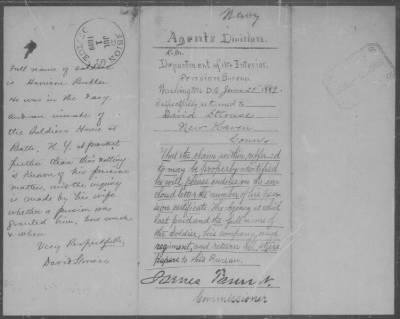 Full name of soldier
is Harrison Butler
He was in the Navy
and an inmate of
the Soldiers Home at
Bath, N.Y. at present
further than this nothing
is known of his pension
matters, and the inquiry
is made by his wife
whether a pension was
granted him, and
& when
Very Respectfully,
David Strouse
JUL 1
Navy
Agents Division.
Department of the Interior,
Pension Bureau,
Washington D.C. June 25 1889.
Respectfully returned to
David Strouse
New Haven
Conn.
That the claim within referred
to may be properly identified
he will please endorse on the en-
closed letter the number of her pen-
sion certificate, the Agency at which
last paid and the full name of
the soldier, his company and
regiment, and return all
papers to this Bureau.
James Tanner
Commissioner